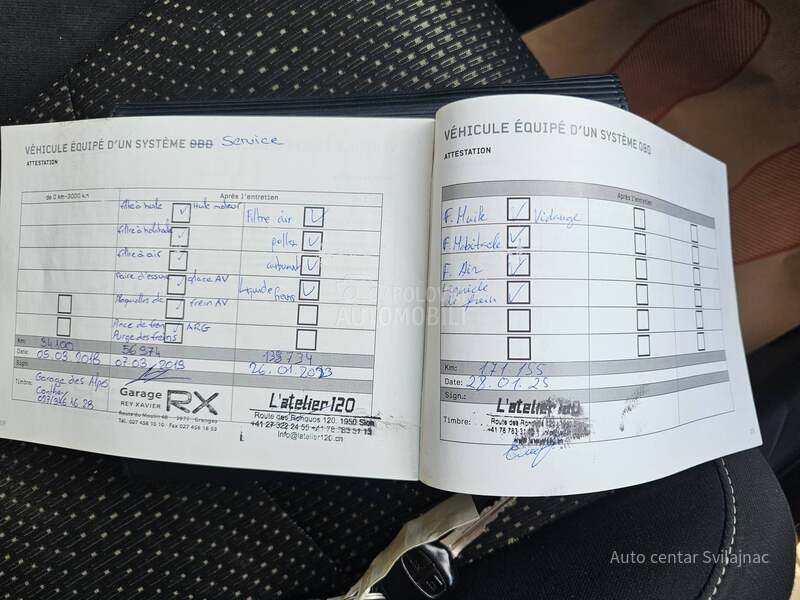 VÉHICULE ÉQUIPÉ D'UN SYSTÈME OBD Service
ATTESTATION
de 0 km-3000 km
Après l'entretien
filtre à huile Huile moteur
filtre à habitacle
filtre à air
glace AV
Plaquettes de frein AV
frein ARG
Purge des freins
Filtre air
pollen
carburant
Liquide freins
Km: 34100 56974 138734
Date: 05.03.2018 07.03.2019 26.01.2023
Sign.:
Timbre: Garage des Alpes
027/346 16 28
Garage RX
REY XAVIER
Route du Moulin 3977 Granges
Tél. 027 458 10 10 - Fax 027 458 16 53
L'atelier120
Route des Ronquos 120, 1950 Sion
+41 27 322 24 55 +41 78 763 31 13
info@latelier120.ch
VÉHICULE ÉQUIPÉ D'UN SYSTÈME OBD
ATTESTATION
Après l'entretien
F. Huile Vidange
F. Habitacle
F. Air
Liquide de frein
Km: 171 155
Date: 28.01.25
Sign.:
Timbre:
L'atelier120
Route des Ronquos 120,
+41 78 763 31
AUTOMOBILI
Auto centar Svilajnac